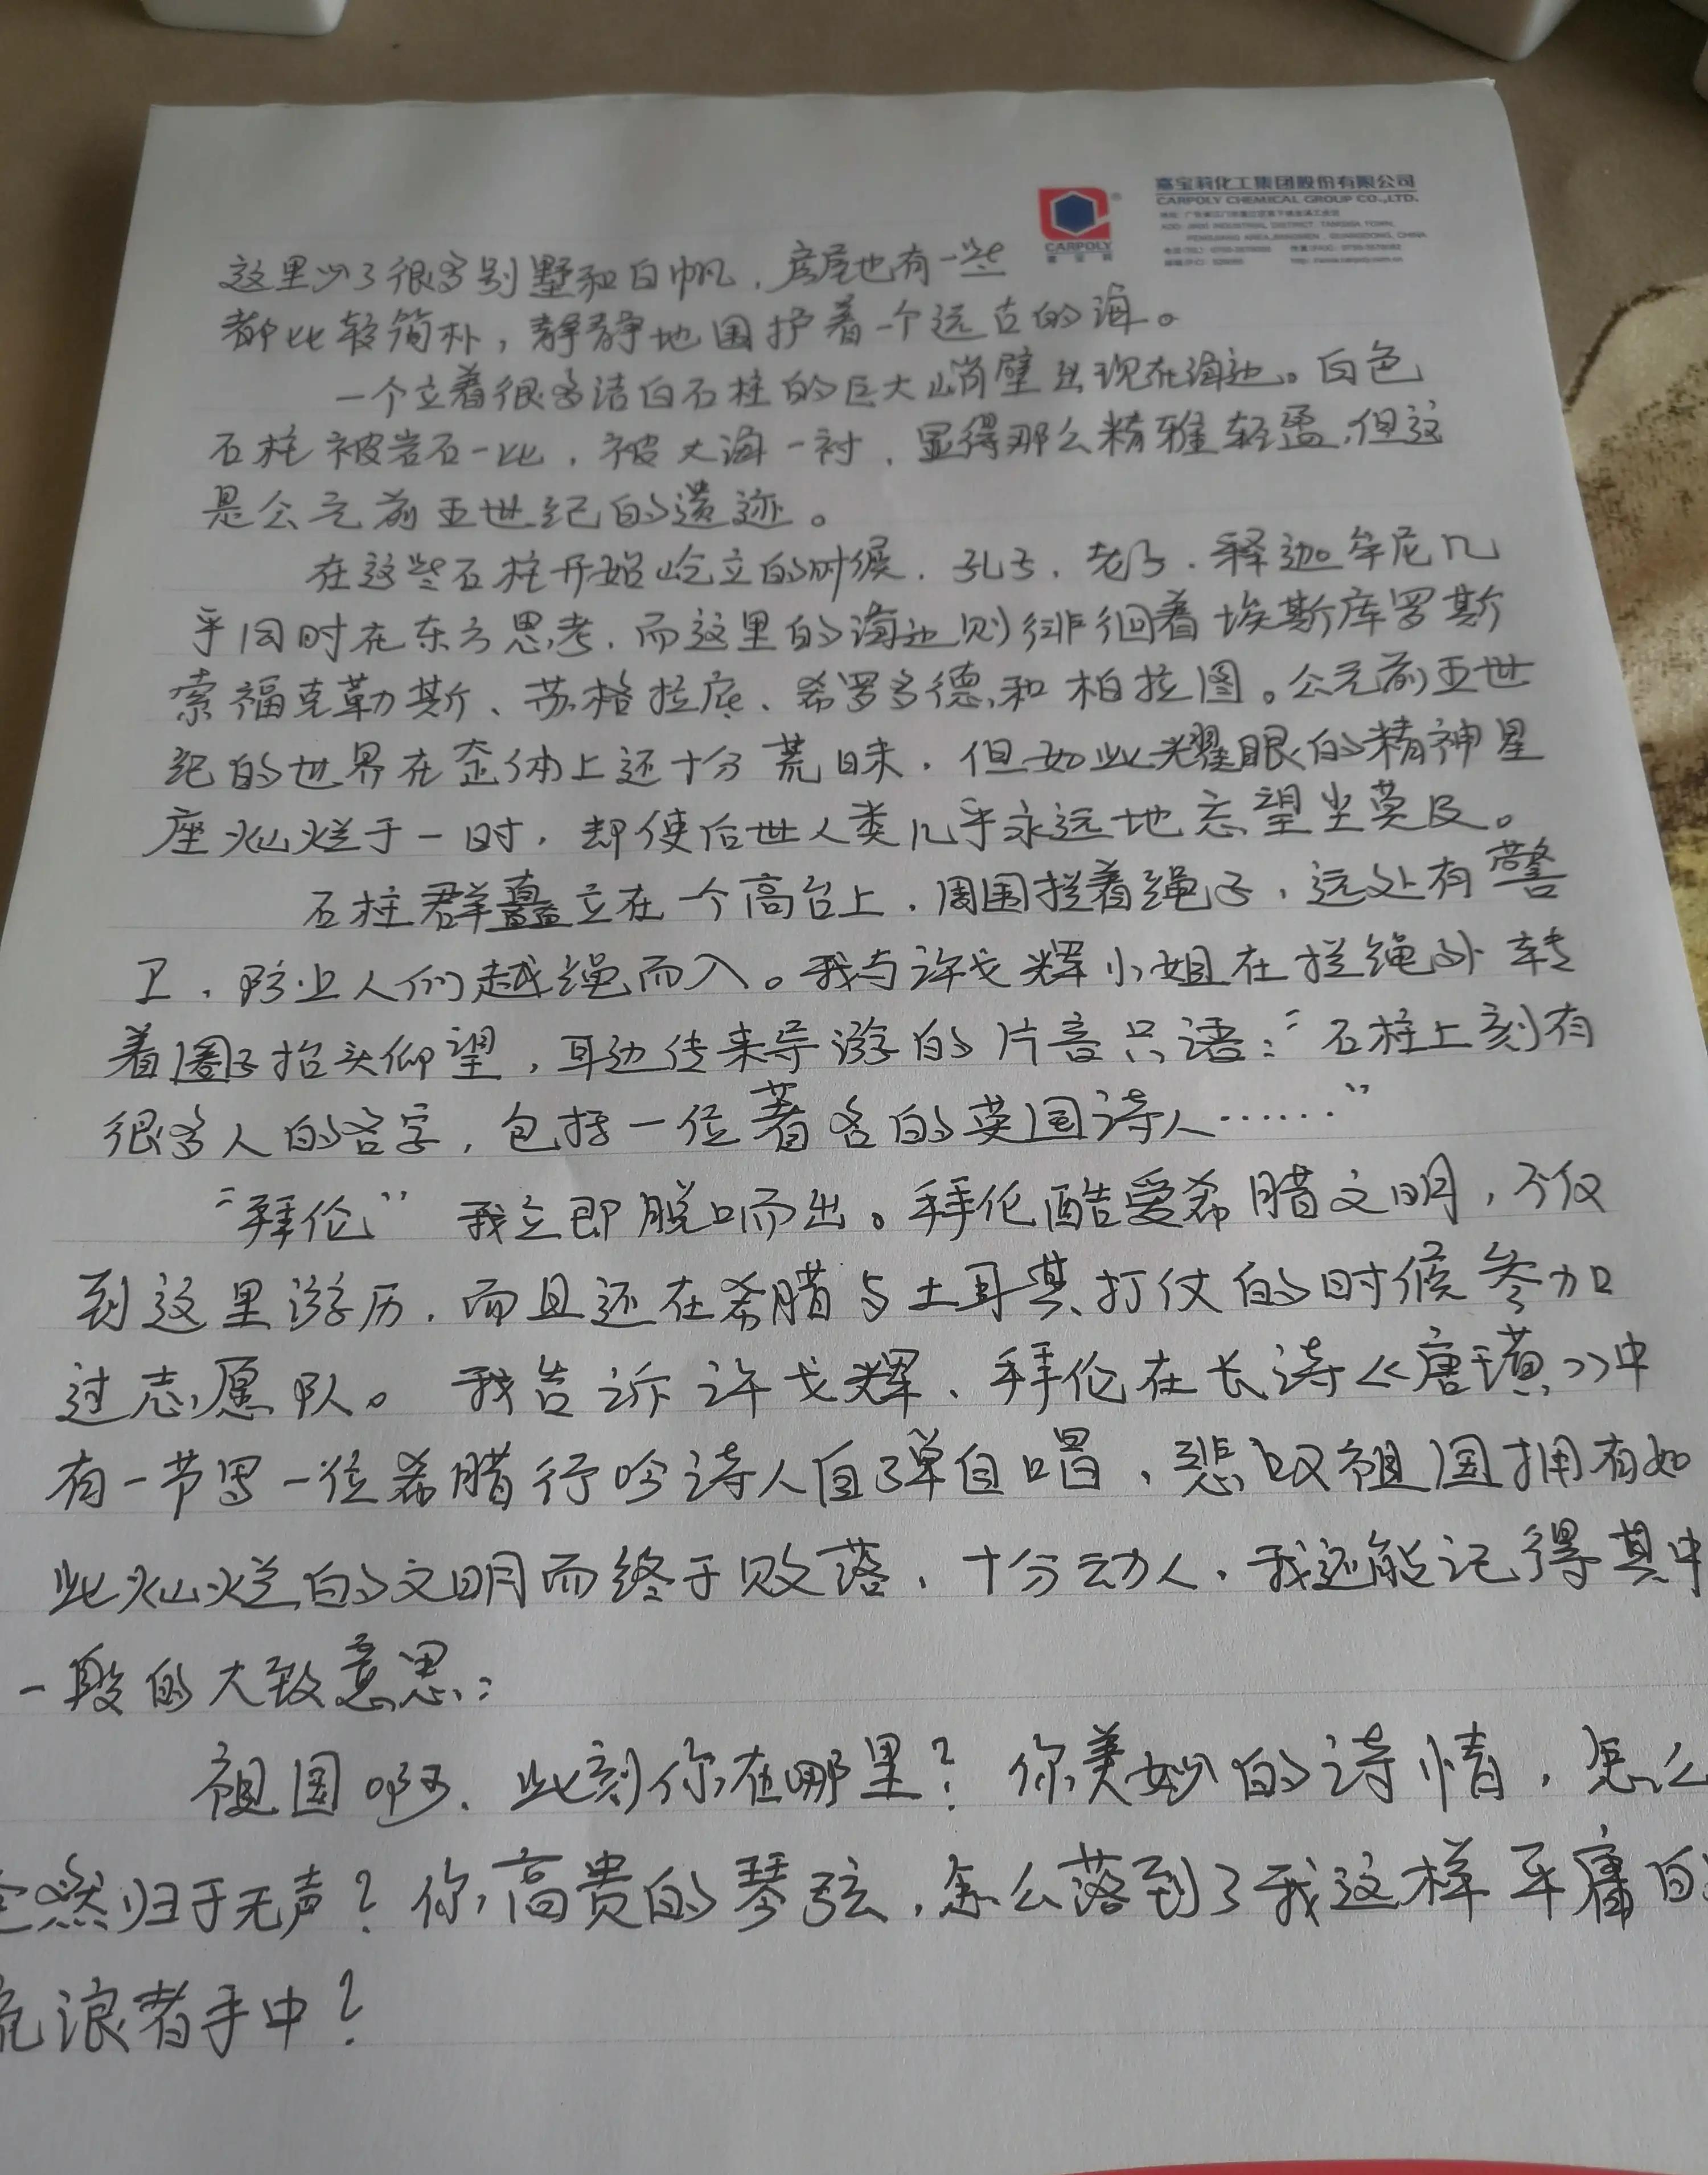 嘉宝莉化工集团股份有限公司
CARPOLY CHEMICAL GROUP CO.,LTD.
CARPOLY
这里少了很多别墅和白帆，房屋也有一些
都比较简朴，静静地围护着一个远古的海。
一个立着很多洁白石柱的巨大峭壁出现在海边。白色
石柱被岩石一比，被大海一衬，显得那么精雅轻盈，但这
是公元前五世纪的遗迹。
在这些石柱开始屹立的时候，孔子、老子、释迦牟尼几
乎同时在东方思考，而这里的海边则徘徊着埃斯库罗斯
索福克勒斯、苏格拉底、希罗多德和柏拉图。公元前五世
纪的世界在整体上还十分荒昧，但如此耀眼的精神星
座灿烂于一时，却使后世人类几乎永远地忘望尘莫及。
石柱群矗立在一个高台上，周围拦着绳子，远处有警
卫，防止人们越绳而入。我与许戈辉小姐在拦绳外转
着圈子抬头仰望，耳边传来导游的片言只语：“石柱上刻有
很多人的名字，包括一位著名的英国诗人……”
“拜伦” 我立即脱口而出。拜伦酷爱希腊文明，不仅
到这里游历，而且还在希腊与土耳其打仗的时候参加
过志愿队。我告诉许戈辉，拜伦在长诗《唐璜》中
有一节写一位希腊行吟诗人自弹自唱，悲叹祖国拥有如
此灿烂的文明而终于败落，十分动人，我还能记得其中
一段的大致意思：
祖国啊，此刻你在哪里？你美妙的诗情，怎么
全然归于无声？你高贵的琴弦，怎么落到了我这样平庸的
流浪者手中？